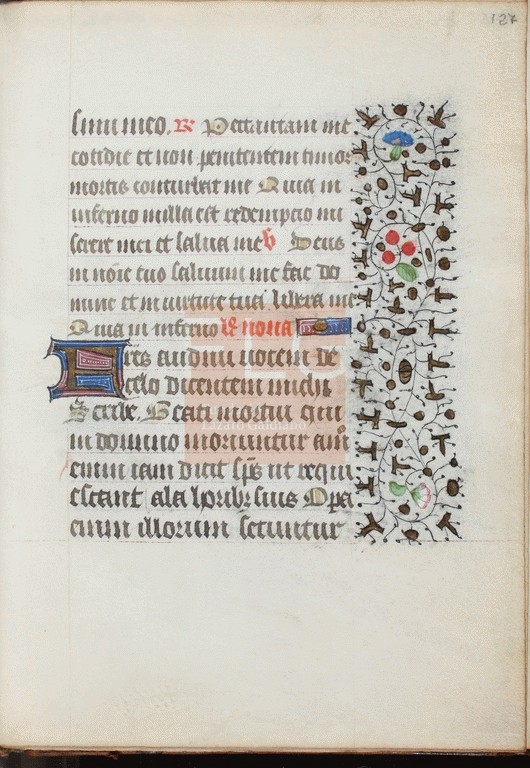 127
simi meo. R Peccantam me
cotidie et non penitentem timor
mortis conturbat me Quia in
inferno nulla est redempcio mi
serere mei et salua me Deus
in noīe tuo saluum me fac Do
mine et in uirtute tua libera me
Quia in inferno nona
de
celo dicentem michi
Scribe. Beati mortui qui
in domino moriuntur am̄
enim iam dicit sp̄s ut requi
escant a laborib₉ suis Opa
enim illorum secuntur
FLG
Lázaro Galdiano